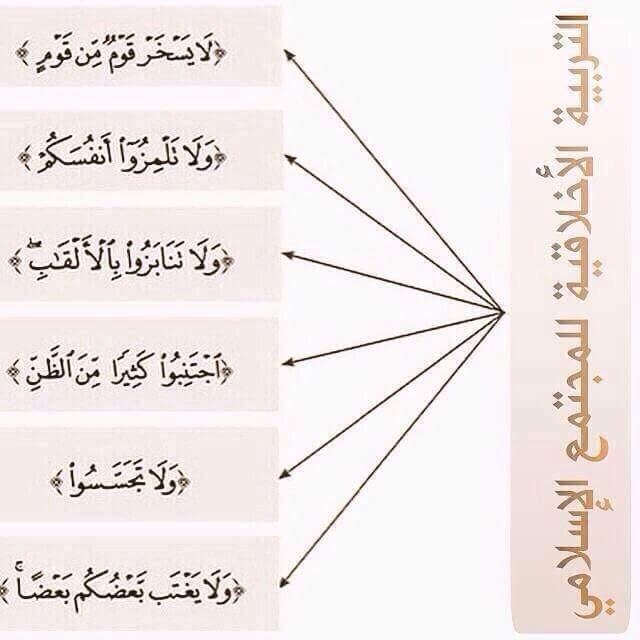 التربية الأخلاقية للمجتمع الإسلامي
﴿لَا يَسۡخَرۡ قَوۡمٞ مِّن قَوۡمٍ﴾
﴿وَلَا تَلۡمِزُوٓاْ أَنفُسَكُمۡ﴾
﴿وَلَا تَنَابَزُواْ بِٱلۡأَلۡقَٰبِۖ﴾
﴿ٱجۡتَنِبُواْ كَثِيرٗا مِّنَ ٱلظَّنِّ﴾
﴿وَلَا تَجَسَّسُواْ﴾
﴿وَلَا يَغۡتَب بَّعۡضُكُم بَعۡضًاۚ﴾